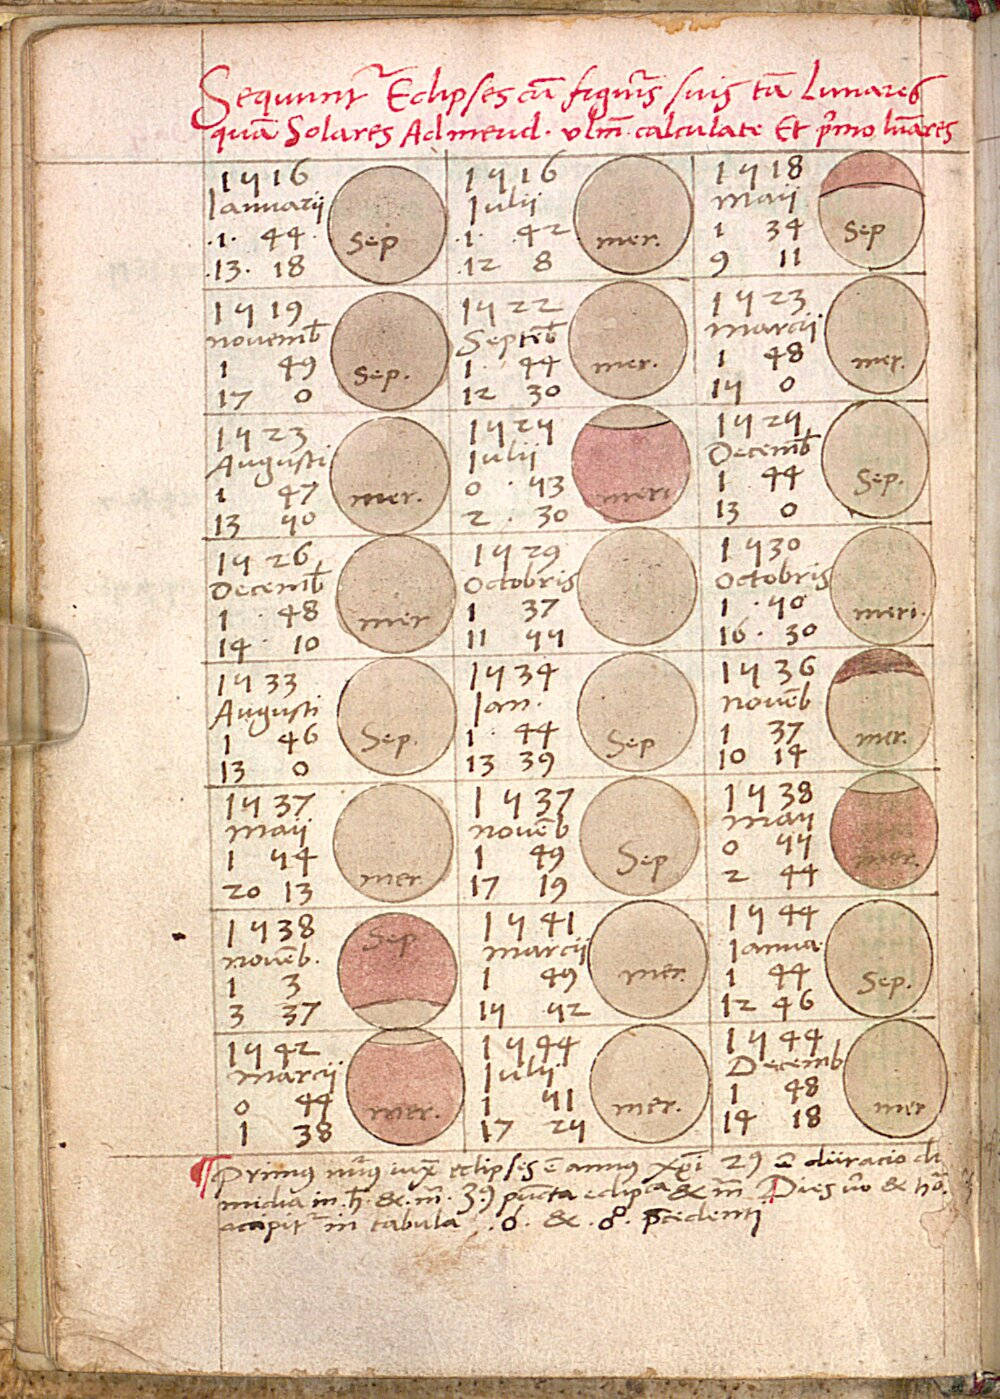 Sequunt̃ Eclipses cũ figuris suis tã Lunares
quã Solares Ad merid. vlm̃. calculate Et p̃mo lũares
1516
Ianuarii
.1. 44.
.13. 18
Sep
1516
Iulii
.1. 42
.12 8
mer.
1518
Maii
1 34
9 11
Sep
1519
Novemb̃
1 49
17 0
Sep.
1522
Septeb̃
1. 44
12 30
mer.
1523
Marcii
1 48
15 0
mer.
1523
Augusti
1 47
13 50
mer.
1525
Iulii
0 . 53
2 . 30
meri
1525
Decemb̃
1 44
13 0
Sep.
1526
Decemb̃
1 . 48
14 . 10
mer
1529
Octobris
1 37
11 55
1530
Octobris
1 . 50
16 . 30
meri.
1533
Augusti
1 46
13 0
Sep.
1534
Ian.
1. 44
13 39
Sep
1536
Novẽb
1 37
10 14
mer.
1537
maii
1 54
20 13
mer.
1537
novẽb
1 49
17 19
Sep
1538
maii
0 55
2 44
mer.
1538
novẽb.
1 3
3 37
Sep
1541
marcii
1 49
15 52
mer.
1544
Ianua.
1 44
12 46
Sep.
1542
marcii
0 44
1 38
mer.
1544
Iulii
1 51
17 25
mer.
1544
Decemb
1 48
14 18
mer
¶ Primus eclipses ẽ annus xp̃i 29 duracio di
midia in h̃. &. m̃. 39 pũcta ecliptica & m̃ Dies v̊o & ho.
accipit̃ in tabula ☌. &. ☍. p̃cedenti